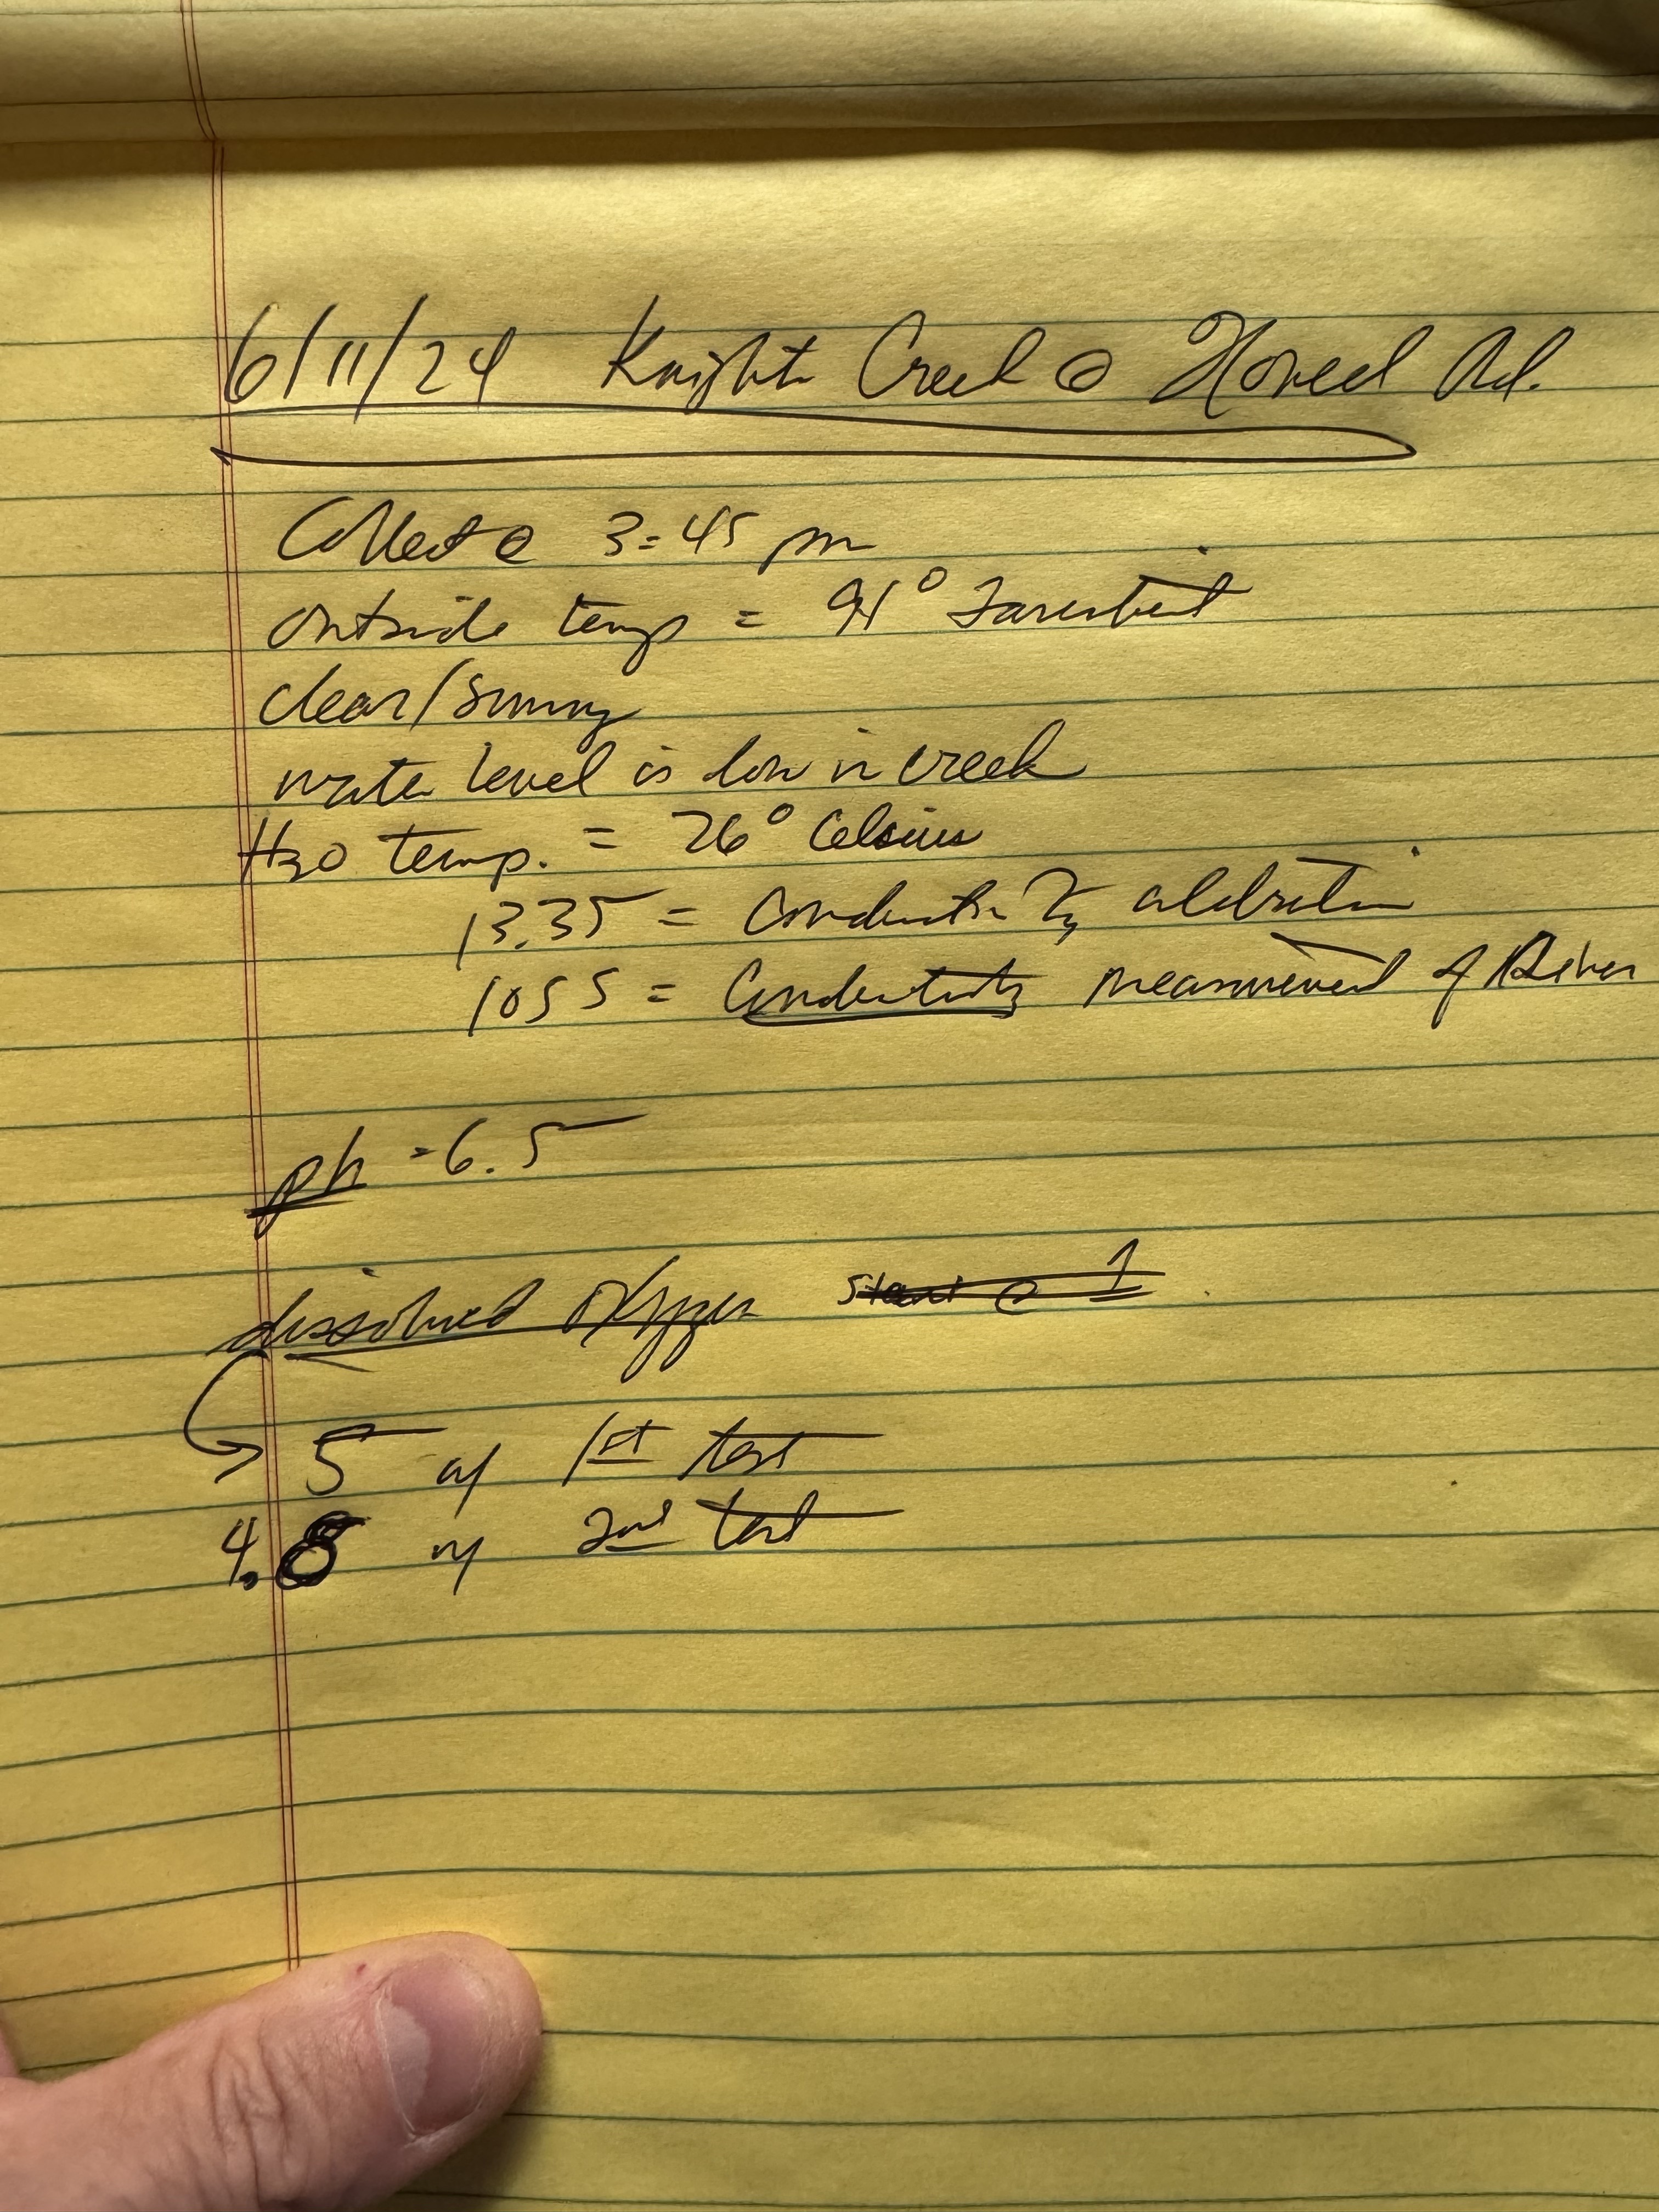 6/11/24 Knight Creek @ Hovel Rd.
Collect @ 3:45 pm
outside temp = 91° Farenheit
clear/sunny
water level is low in creek
H2O temp. = 26° Celsius
13.35 = Conductivity calibration
1055 = Conductivity measurement of River
ph = 6.5
dissolved oxygen start @ 1
5 w/ 1st test
4.8 w/ 2nd test